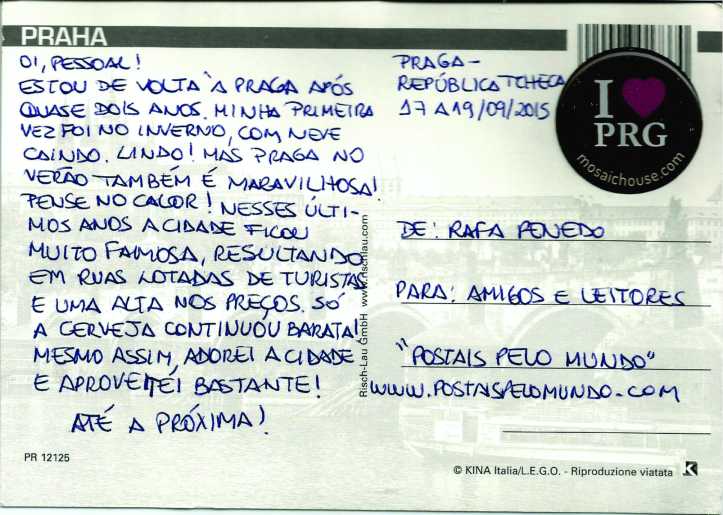 PRAHA
OI, PESSOAL!
ESTOU DE VOLTA À PRAGA APÓS
QUASE DOIS ANOS. MINHA PRIMEIRA
VEZ FOI NO INVERNO, COM NEVE
CAINDO. LINDO! MAS PRAGA NO
VERÃO TAMBÉM É MARAVILHOSA!
PENSE NO CALOR! NESSES ÚLTI-
MOS ANOS A CIDADE FICOU
MUITO FAMOSA, RESULTANDO
EM RUAS LOTADAS DE TURISTAS
E UMA ALTA NOS PREÇOS. SÓ
A CERVEJA CONTINUOU BARATA!
MESMO ASSIM, ADOREI A CIDADE
E APROVEITEI BASTANTE!
ATÉ A PRÓXIMA!
PR 12125
Risch-Lau GmbH www.rischlau.com
PRAGA-
REPÚBLICA TCHECA
17 A 19/09/2015
I
PRG
mosaichouse.com
DE: RAFA PENEDO
PARA: AMIGOS E LEITORES
"POSTAIS PELO MUNDO"
WWW.POSTAISPELOMUNDO.COM
© KINA Italia/L.E.G.O. - Riproduzione viatata K